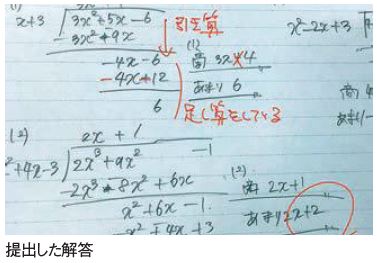 (1)
x+3 ) 3x²+5x-6
-3x²+9x
-4x-6
-4x+12
6
引き算
(1)
商 3x-4
あまり 6
足し算をしている
x²-2x+3
商
あまり
(2)
2x+1
x²+4x-3 ) 2x³+9x² -1
-2x³-8x²+6x
x²+6x-1
-x²+4x+3
(2)
商 2x+1
あまり2x+2
提出した解答